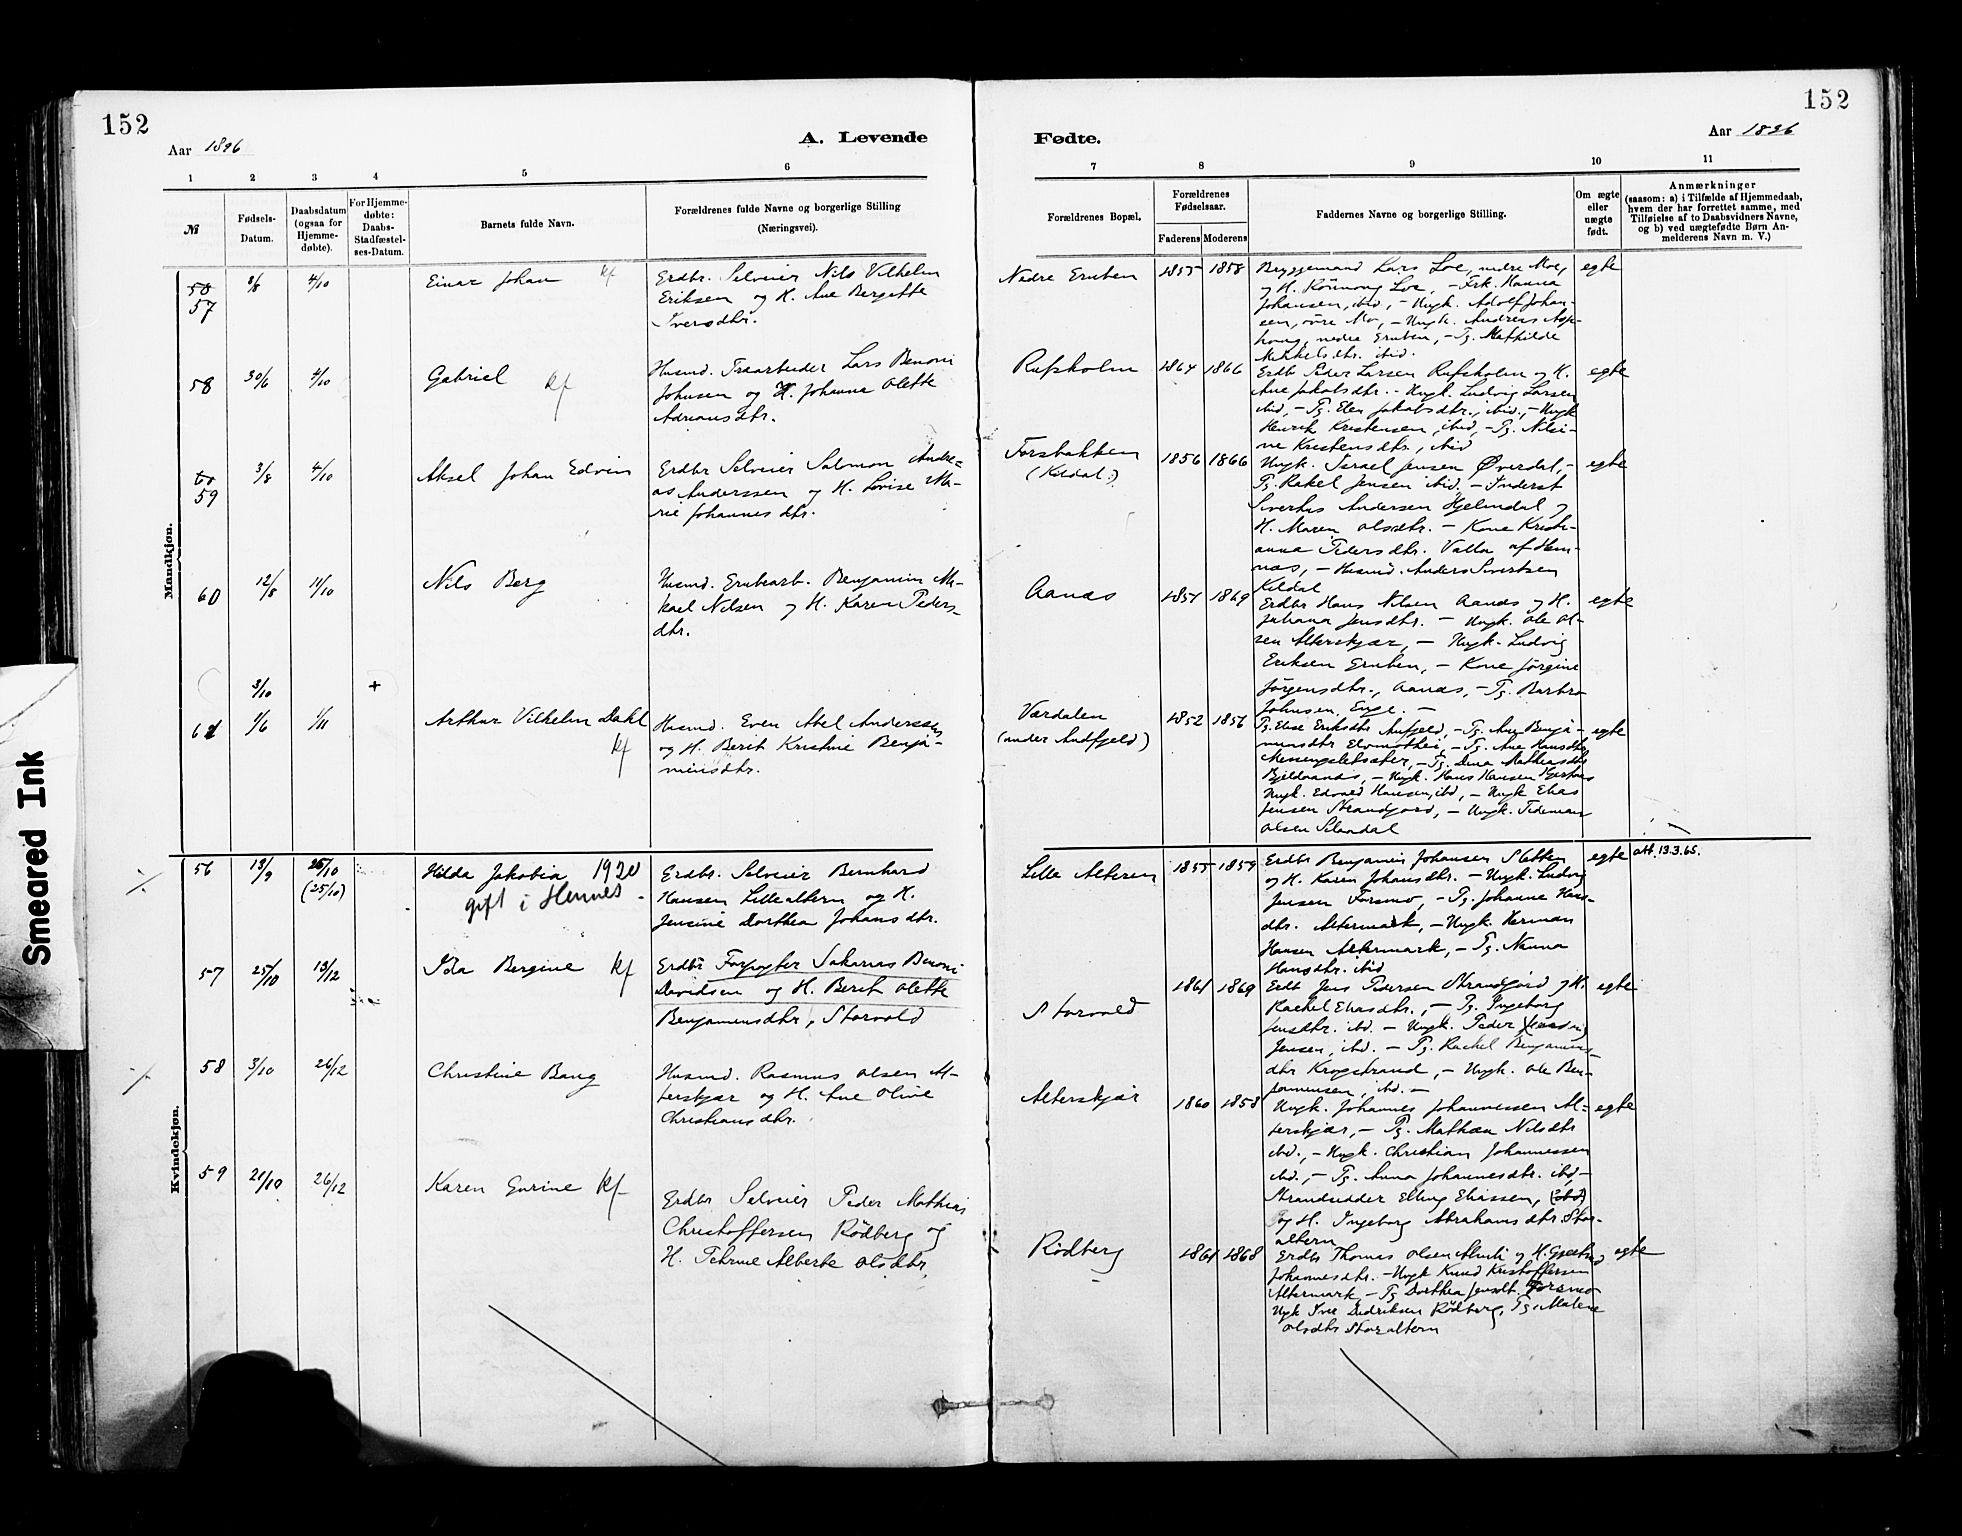 152
152
Aar 1896
A. Levende
Fødte.
Aar 1896
1 2 3 4 5 6
7 8 9 10 11
№
Fødsels-
Datum.
Daabsdatum
(ogsaa for
Hjemme-
døbte).
For Hjemme-
døbte:
Daabs-
Stadfæstel-
ses-Datum.
Barnets fulde Navn.
Forældrenes fulde Navne og borgerlige Stilling
(Næringsvei).
Forældrenes Bopæl.
Forældrenes
Fødselsaar.
Faderens
Moderens
Faddernes Navne og borgerlige Stilling.
Om ægte
eller
uægte
født.
Anmærkninger
(saasom: a) i Tilfælde af Hjemmedaab,
hvem der har forrettet samme, med
Tilføielse af to Daabsvidners Navne,
og b) ved uægtefødte Børn An-
melderens Navn m. V.)
Mandkjøn.
57
4/10
Einar Johan
Erdbr. Selveier Nils Vilhelm
Eriksen og H. Ane Bergette
Iversdtr.
Nedre Gruben
1855 1858
Byggemand Lars Loe, nedre Mo,
og H. Rönnoug Loe, - Frk. Hanna
Johansen, ibid, - Ungk. Adolf Johan-
sen, øvre Mo, - Ungk. Andreas Asp-
houg, nedre Gruben, - Pg. Mathilde
Mikkelsdtr. ibid.
egte
58
30/6
4/10
Gabriel
Husmd. Træarbeider Lars Benoni
Johnsen og H. Johanna Olette
Adriansdtr.
Rufsholm
1864 1866
Erdbr Peder Larsen Rufsholm og H.
Ane Jakobsdtr. - Ungk. Ludvig Larsen
ibid, - Pg. Elen Jakobsdtr., ibid, - Ungk
Henrik Kristensen, ibid, - Pg. Nilsi-
ne Kristensdtr., ibid
egte
59
3/8
4/10
Aksel Johan Edvin
Erdbr Selveier Salmon Andre-
as Anderssen og H. Lovise Ma-
rie Johannesdtr.
Forsbakken
(Kildal.)
1856 1866
Ungk. Israel Jensen Øverdal, -
Pg. Rakel Jensen ibid. - Inderst
Sivertus Andersen Hjelmdal og
H. Maren Olsdtr. - Kone Kristi-
anna Pedersdtr. Valla af Hem-
næs, - Husmd. Anders Sivertsen
Kildal
egte
60
12/8
11/10
Nils Berg
Husmd. Grubearb. Benjamin Mi-
kael Nilsen og H. Karen Peders-
dtr.
Aanæs
1869
Erdbr Hans Nilsen Aanæs og H.
Johana Jensdtr. - Ungk. Ole Ol-
sen Alterskjær, - Ungk. Ludvig
Eriksen Gruben, - Kone Jørgine
Jørgensdtr., Aanæs, - Pg. Barbro
Johnsen Enge. -
egte
3/10
+
61
1/11
Arthur Vilhelm Dahl
Husmd. Even Abel Anderssen
og H. Berit Kristine Benja-
minsdtr.
Værdalen
(under Andfjeld)
1852
Pg. Elise Eriksdtr Aufjeld, - Pg. Ane Benja-
minsdtr
egte
Kvindekjøn.
56
13/9
25/10
(25/10)
Hilda Jakobia 1920
gift i Hemnes -
Erdbr. Selveier Bernhard
Hansen Lillealtern og H.
Jensine Dorthea Johansdtr.
Lille Alteren
1855 1859
Erdbr Benjamin Johansen Sletten
og H. Karen Johansdtr. - Ungk. Ludvig
Jensen Forsmo, - Pg. Johanne Hans-
dtr. Altermark, - Ungk. Herman
Hansen Altermark, - Pg. Nanna
Hansdtr. ibid
egte
att. 13.3.65.
57
25/10
13/12
Ida Bergine
Erdbr Forpagter Sakarias Benoni
Davidsen og H. Berit Olette
Benjaminsdtr, Storvold
Storvold
1861 1869
Erdb Jens Pedersen Strandjord og H.
Rachel Eliasdtr., - Pg. Ingeborg
Jensdtr. ibd. - Ungk. Peder
Jensen, ibd. - Pg. Rachel Benjamins-
dtr Krogstrand, - Ungk. Ole Ben-
jaminsen, ibd. -
egte
58
3/10
26/12
Christine Bang
Husmd. Rasmus Olsen Al-
terskjær og H. Ane Oline
Christiansdtr.
Alterskjær
1860 1858
Ungk. Johannes Johannessen Al-
terskjær, - Pg. Mathea Nilsdtr
ibd., - Ungk. Christian Johannessen
ibd., - Pg. Anna Johannesdtr. ibd, -
Strandsidder Elling Eliassen, (ibd)
og H. Ingeborg Abrahamsdtr. Stor-
altern
egte
59
21/10
26/12
Karen Gurine
Erdbr Selveier Peder Mathias
Christoffersen Rödberg og
H. Alberte Olsdtr,
Rödberg
1861 1868
Erdbr Thomas Olsen og H.
Johannesdtr. - Ungk Knud Kristoffersen
Altermark, - Pg Dorthea Jensdt. Forsmo
Ungk Iver Rödberg, Pg. Malene
Olsdtr Storaltern
egte
Smeared Ink